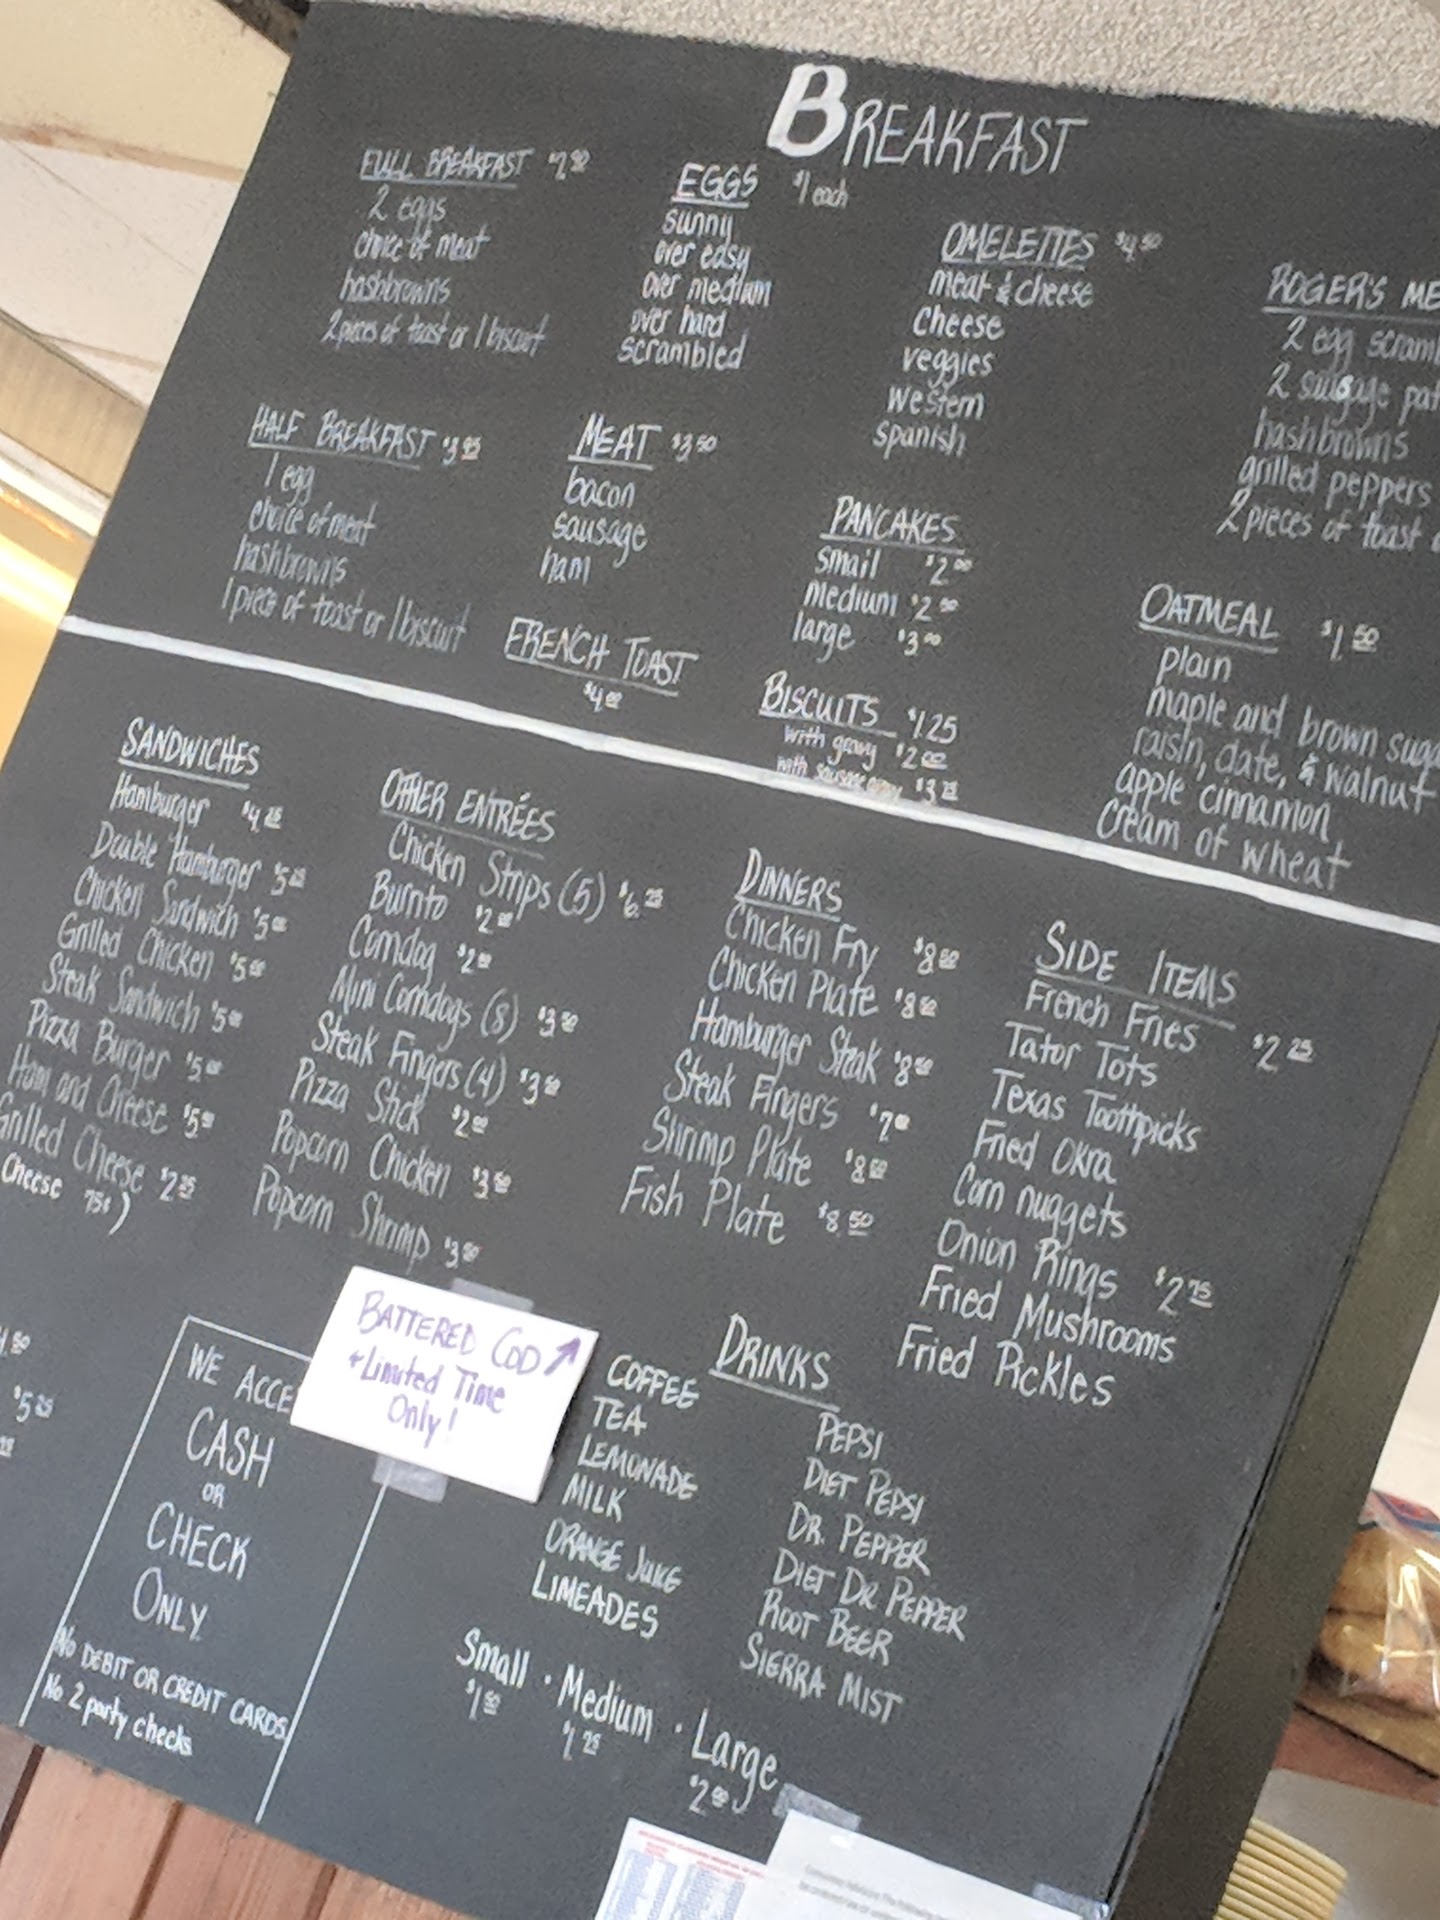 BREAKFAST
FULL BREAKFAST
2 eggs
choice of meat
hashbrowns
2 pieces of toast or 1 biscuit
EGGS $1 each
sunny
over easy
over medium
over hard
scrambled
OMELETTES $4.50
meat & cheese
cheese
veggies
western
spanish
ROGER'S ME
2 egg scram
2 sausage pat
hashbrowns
grilled peppers
2 pieces of toast
HALF BREAKFAST $3.95
1 egg
choice of meat
hashbrowns
1 piece of toast or 1 biscuit
MEAT $3.50
bacon
sausage
ham
FRENCH TOAST
$4.00
PANCAKES
small $2.00
medium $2.50
large $3.00
BISCUITS $1.25
with gravy $2.00
with sausage gravy $3.25
OATMEAL $1.50
plain
maple and brown suga
raisin, date, & walnut
apple cinnamon
cream of wheat
SANDWICHES
Hamburger $4.25
Double Hamburger $5.25
Chicken Sandwich $5.00
Grilled Chicken $5.00
Steak Sandwich $5.00
Pizza Burger $5.00
Ham and Cheese $5.00
Grilled Cheese $2.25
Cheese 75¢)
OTHER ENTRÉES
Chicken Strips (5) $6.25
Burrito $2.00
Corndog $2.00
Mini Corndogs (8) $3.50
Steak Fingers (4) $3.50
Pizza Stick $2.00
Popcorn Chicken $3.50
Popcorn Shrimp $3.50
DINNERS
Chicken Fry $8.50
Chicken Plate $8.50
Hamburger Steak $8.50
Steak Fingers $7.00
Shrimp Plate $8.00
Fish Plate $8.50
SIDE ITEMS
French Fries $2.25
Tator Tots
Texas Toothpicks
Fried Okra
Corn nuggets
Onion Rings $2.75
Fried Mushrooms
Fried Pickles
BATTERED COD ↗
*Limited Time
Only!
.50
$5.25
WE ACCE
CASH
OR
CHECK
ONLY
NO DEBIT OR CREDIT CARDS
No 2 party checks
DRINKS
COFFEE
TEA
LEMONADE
MILK
ORANGE JUICE
LIMEADES
PEPSI
DIET PEPSI
DR. PEPPER
DIET DR PEPPER
ROOT BEER
SIERRA MIST
Small · Medium · Large
$1.50 $1.75 $2.00